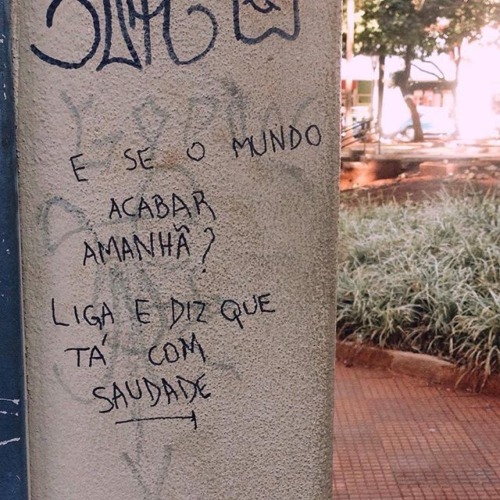 E SE O MUNDO
ACABAR
AMANHÃ?
LIGA E DIZ QUE
TÁ COM
SAUDADE